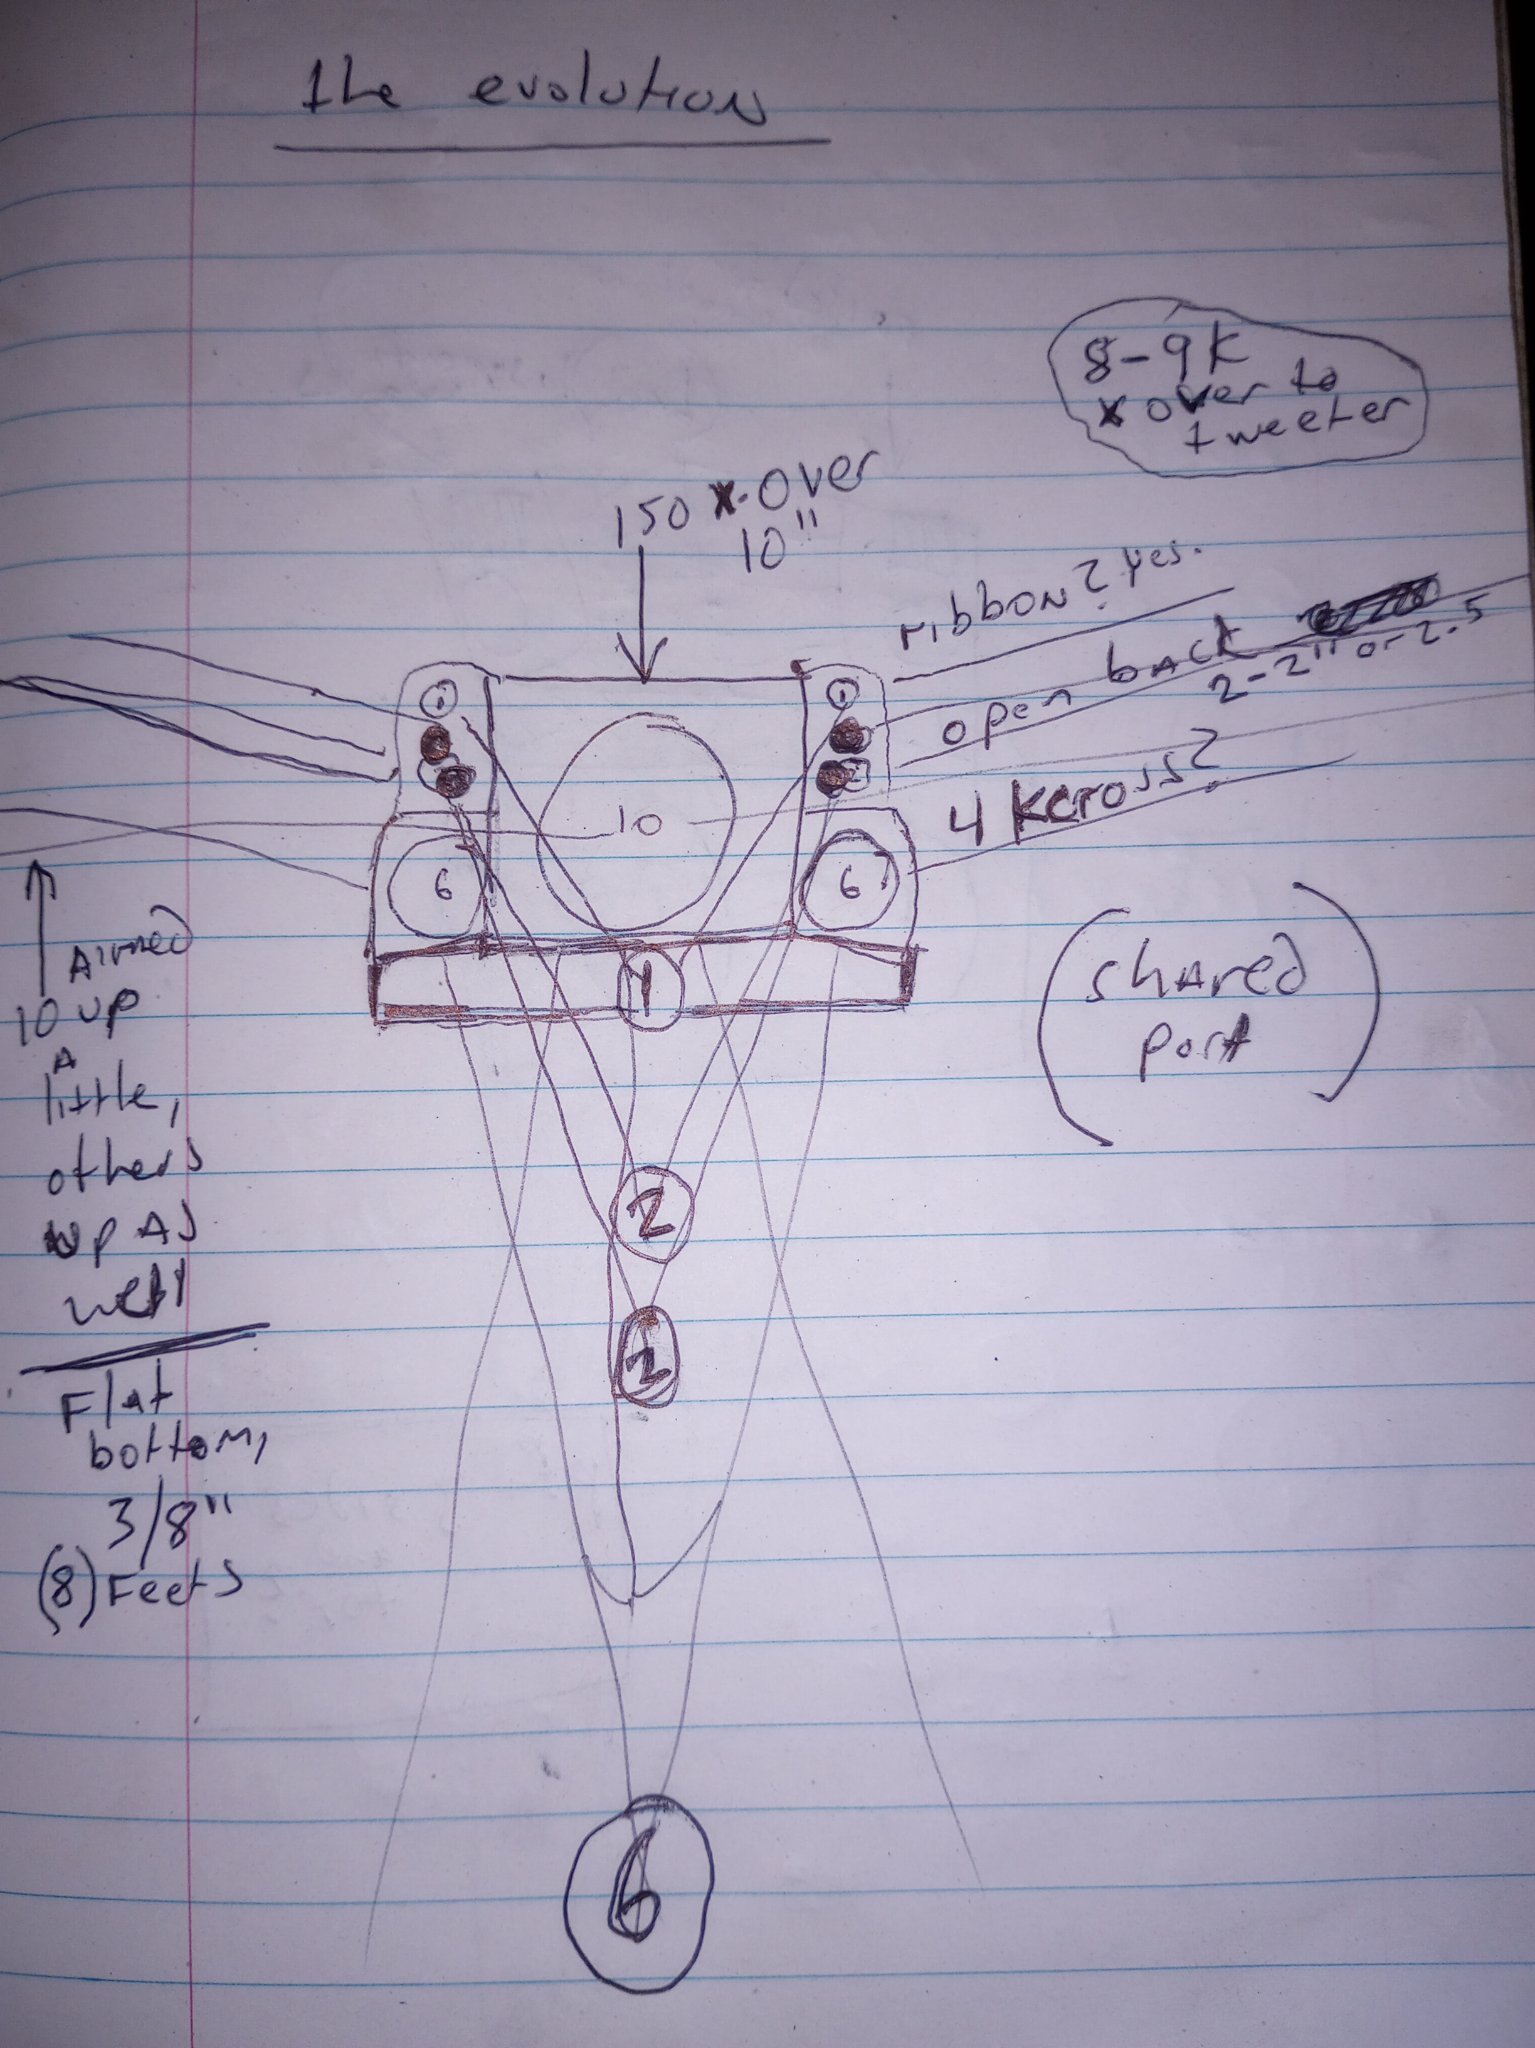 the evolution
8-9K
x over to
tweeter
150 x-over
10"
ribbon? yes.
open back
2-2" or 2.5
4 Kcross?
1
1
2
10
6
6
1
(shared
port)
Aimed
10 up
A
little,
others
up As
well
2
2
Flat
bottom,
3/8"
(8) Feets
6